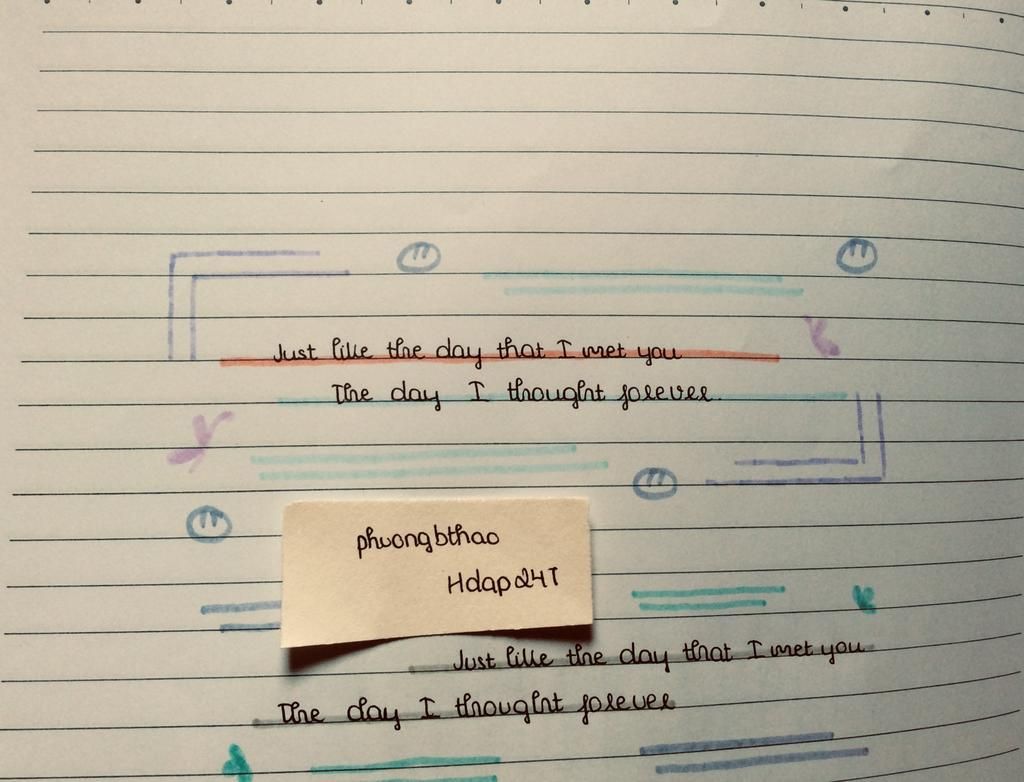 Just like the day that I met you
The day I thought forever.
phuongbthao
Hdapd4T
Just like the day that I met you
The day I thought forever